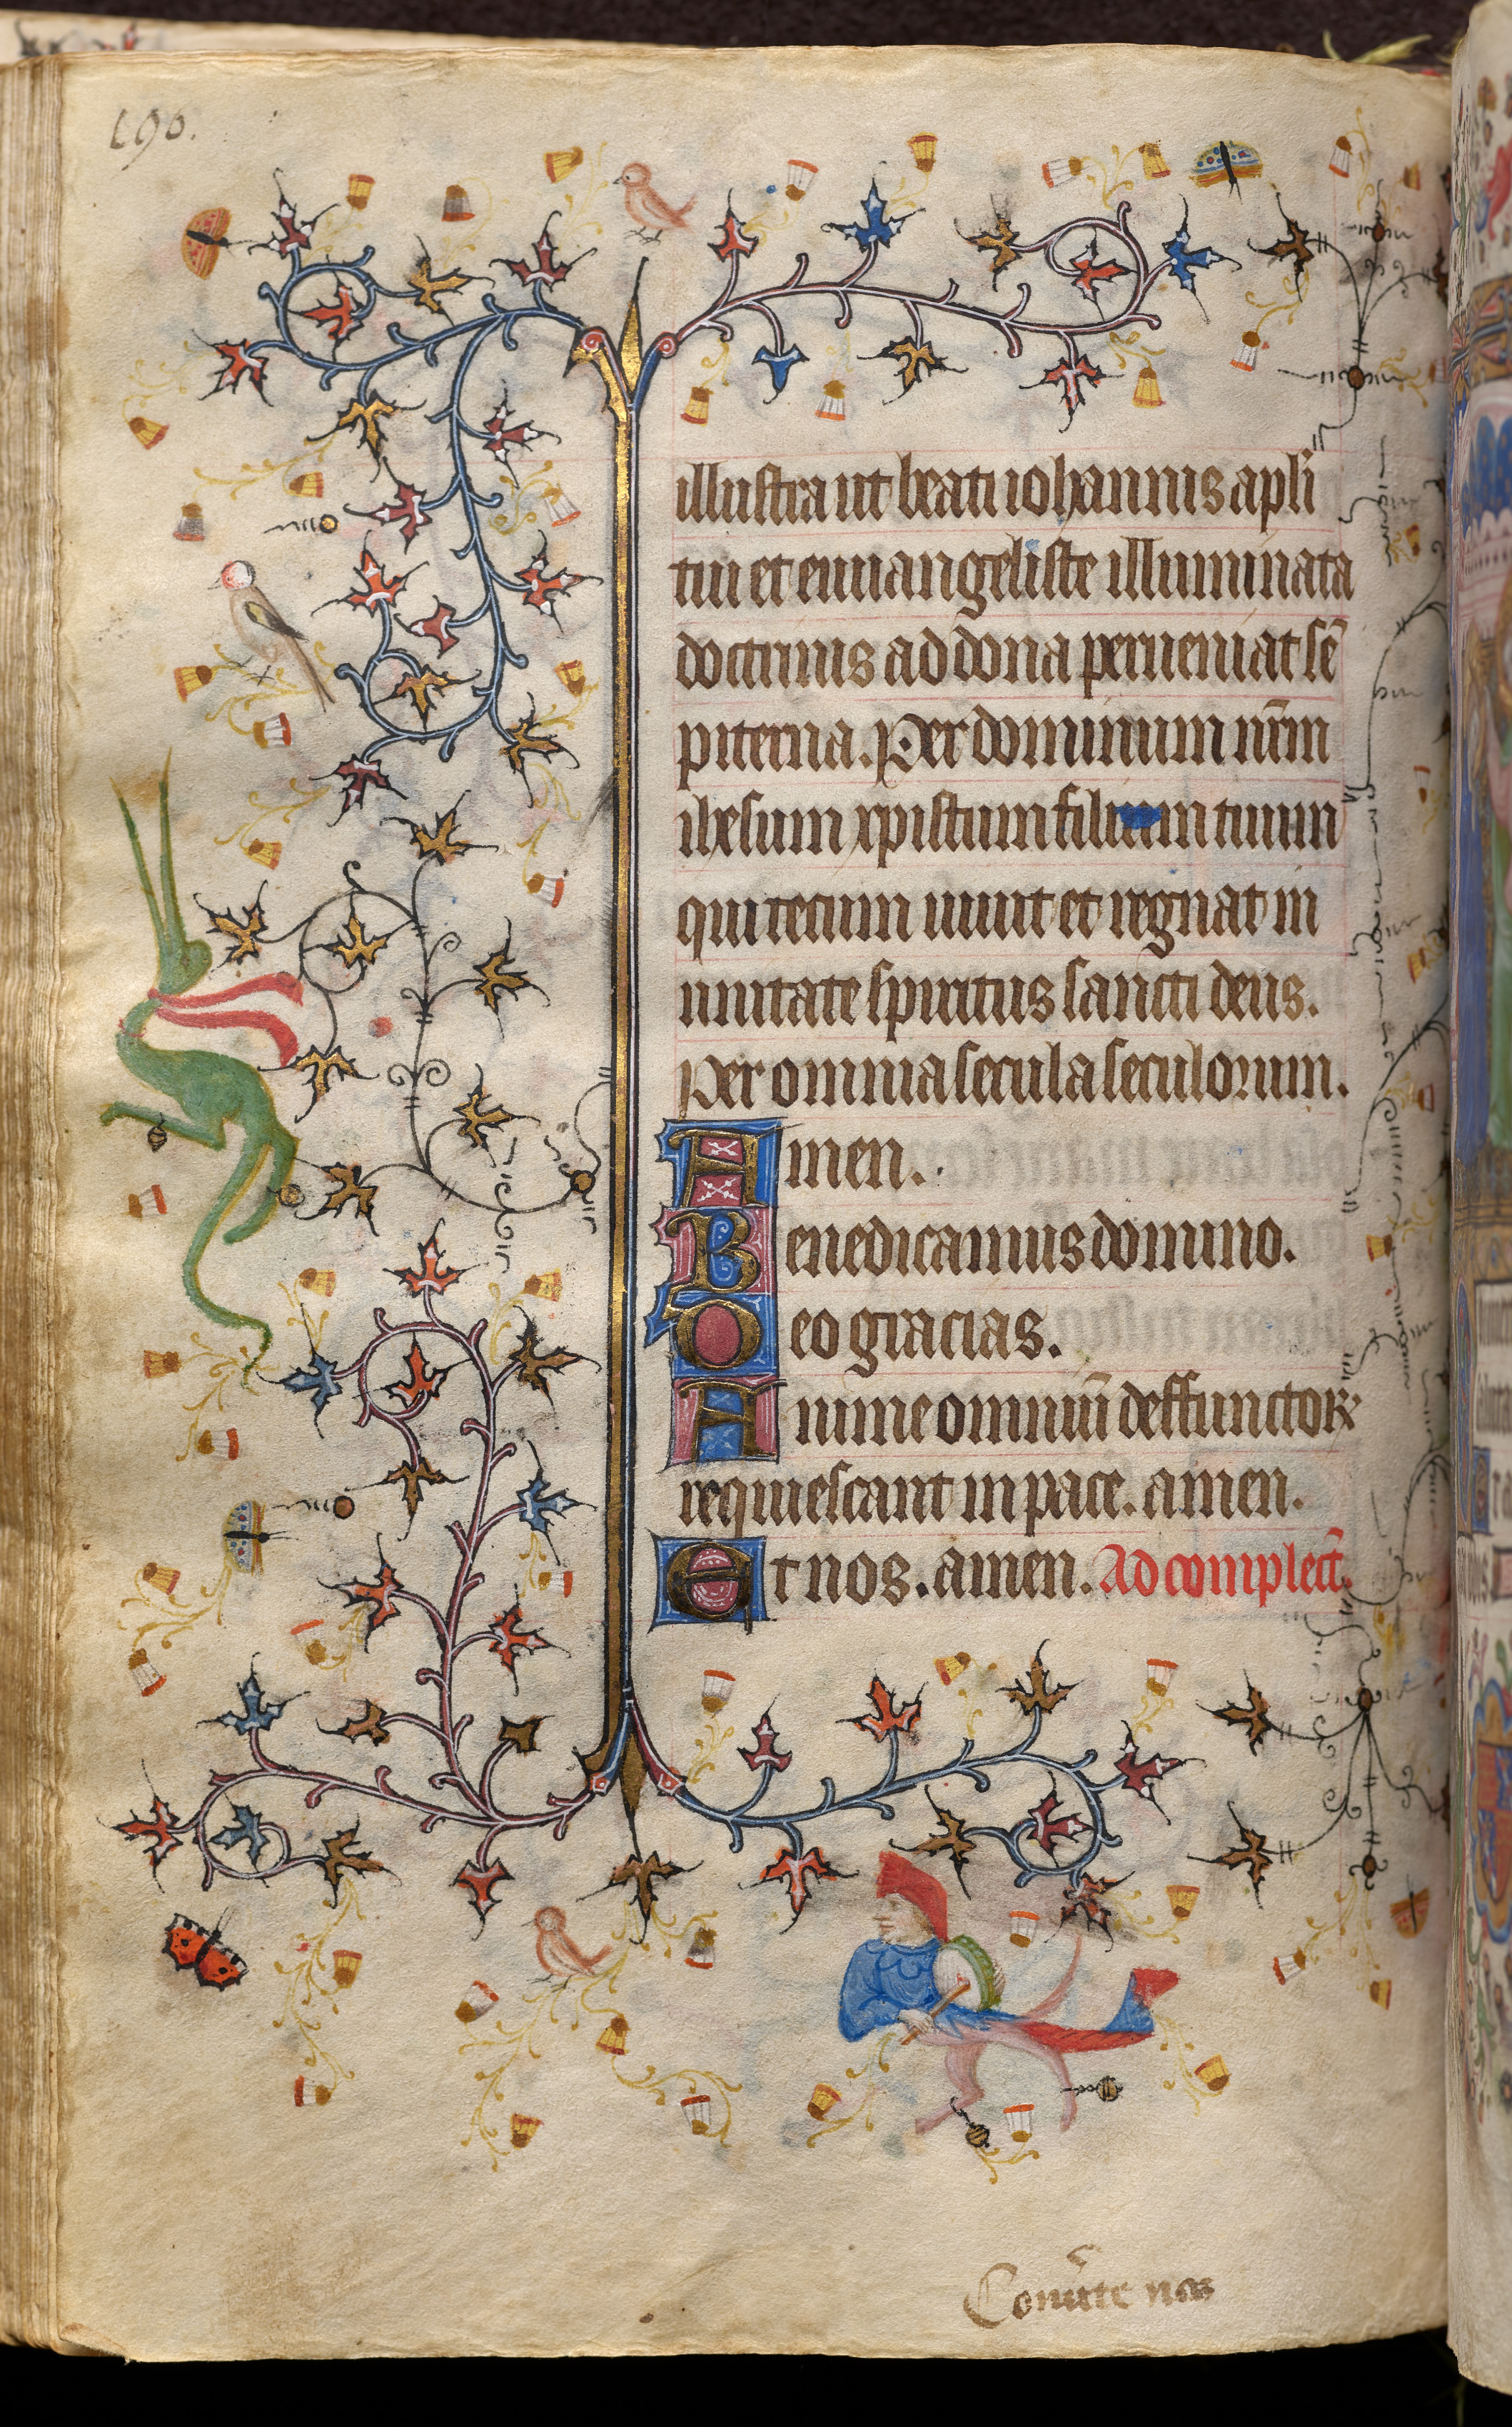 196.
illustra ut beati iohannis apl̄i
tui et euuangeliste illuminata
doctrinis ad dona perueniat sē
piterna. Per dominum nr̄m
ihesum xpistum filium tuum
qui tecum uiuit et regnat in
unitate spiritus sancti deus.
Per omnia secula seculorum.
Amen.
Benedicamus domino.
Deo gracias.
Anime omniū deffunctoꝝ
requiescant in pace. amen.
Et nos. amen. Ad complect̄.
Conu̾te nos